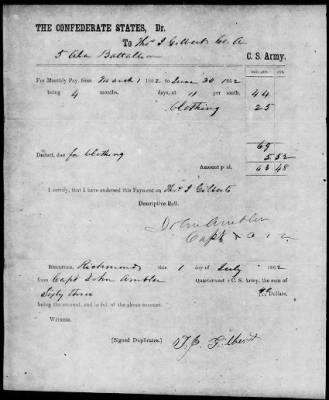 THE CONFEDERATE STATES, Dr.
To Thos J Gilbert Co. A
5 Ala Battalion C. S. Army.
DOLLARS. CTS.
For Monthly Pay, from March 1 1862, to June 30 1862
being 4 months, days, at 11 per month, 44
Clothing 25
69
Deduct, due for Clothing 5.52
Amount paid, 63 48
I certify, that I have endorsed this Payment on Thos J Gilberts
Descriptive Roll.
John Ambler
Capt
RECEIVED, Richmond this 1 day of July 1862
from Capt John Ambler Quartermaster C. S. Army, the sum of
Sixty three Dollars,
being the amount, and in full of the above account.
Witness.
[Signed Duplicates.] T. J. Gilbert